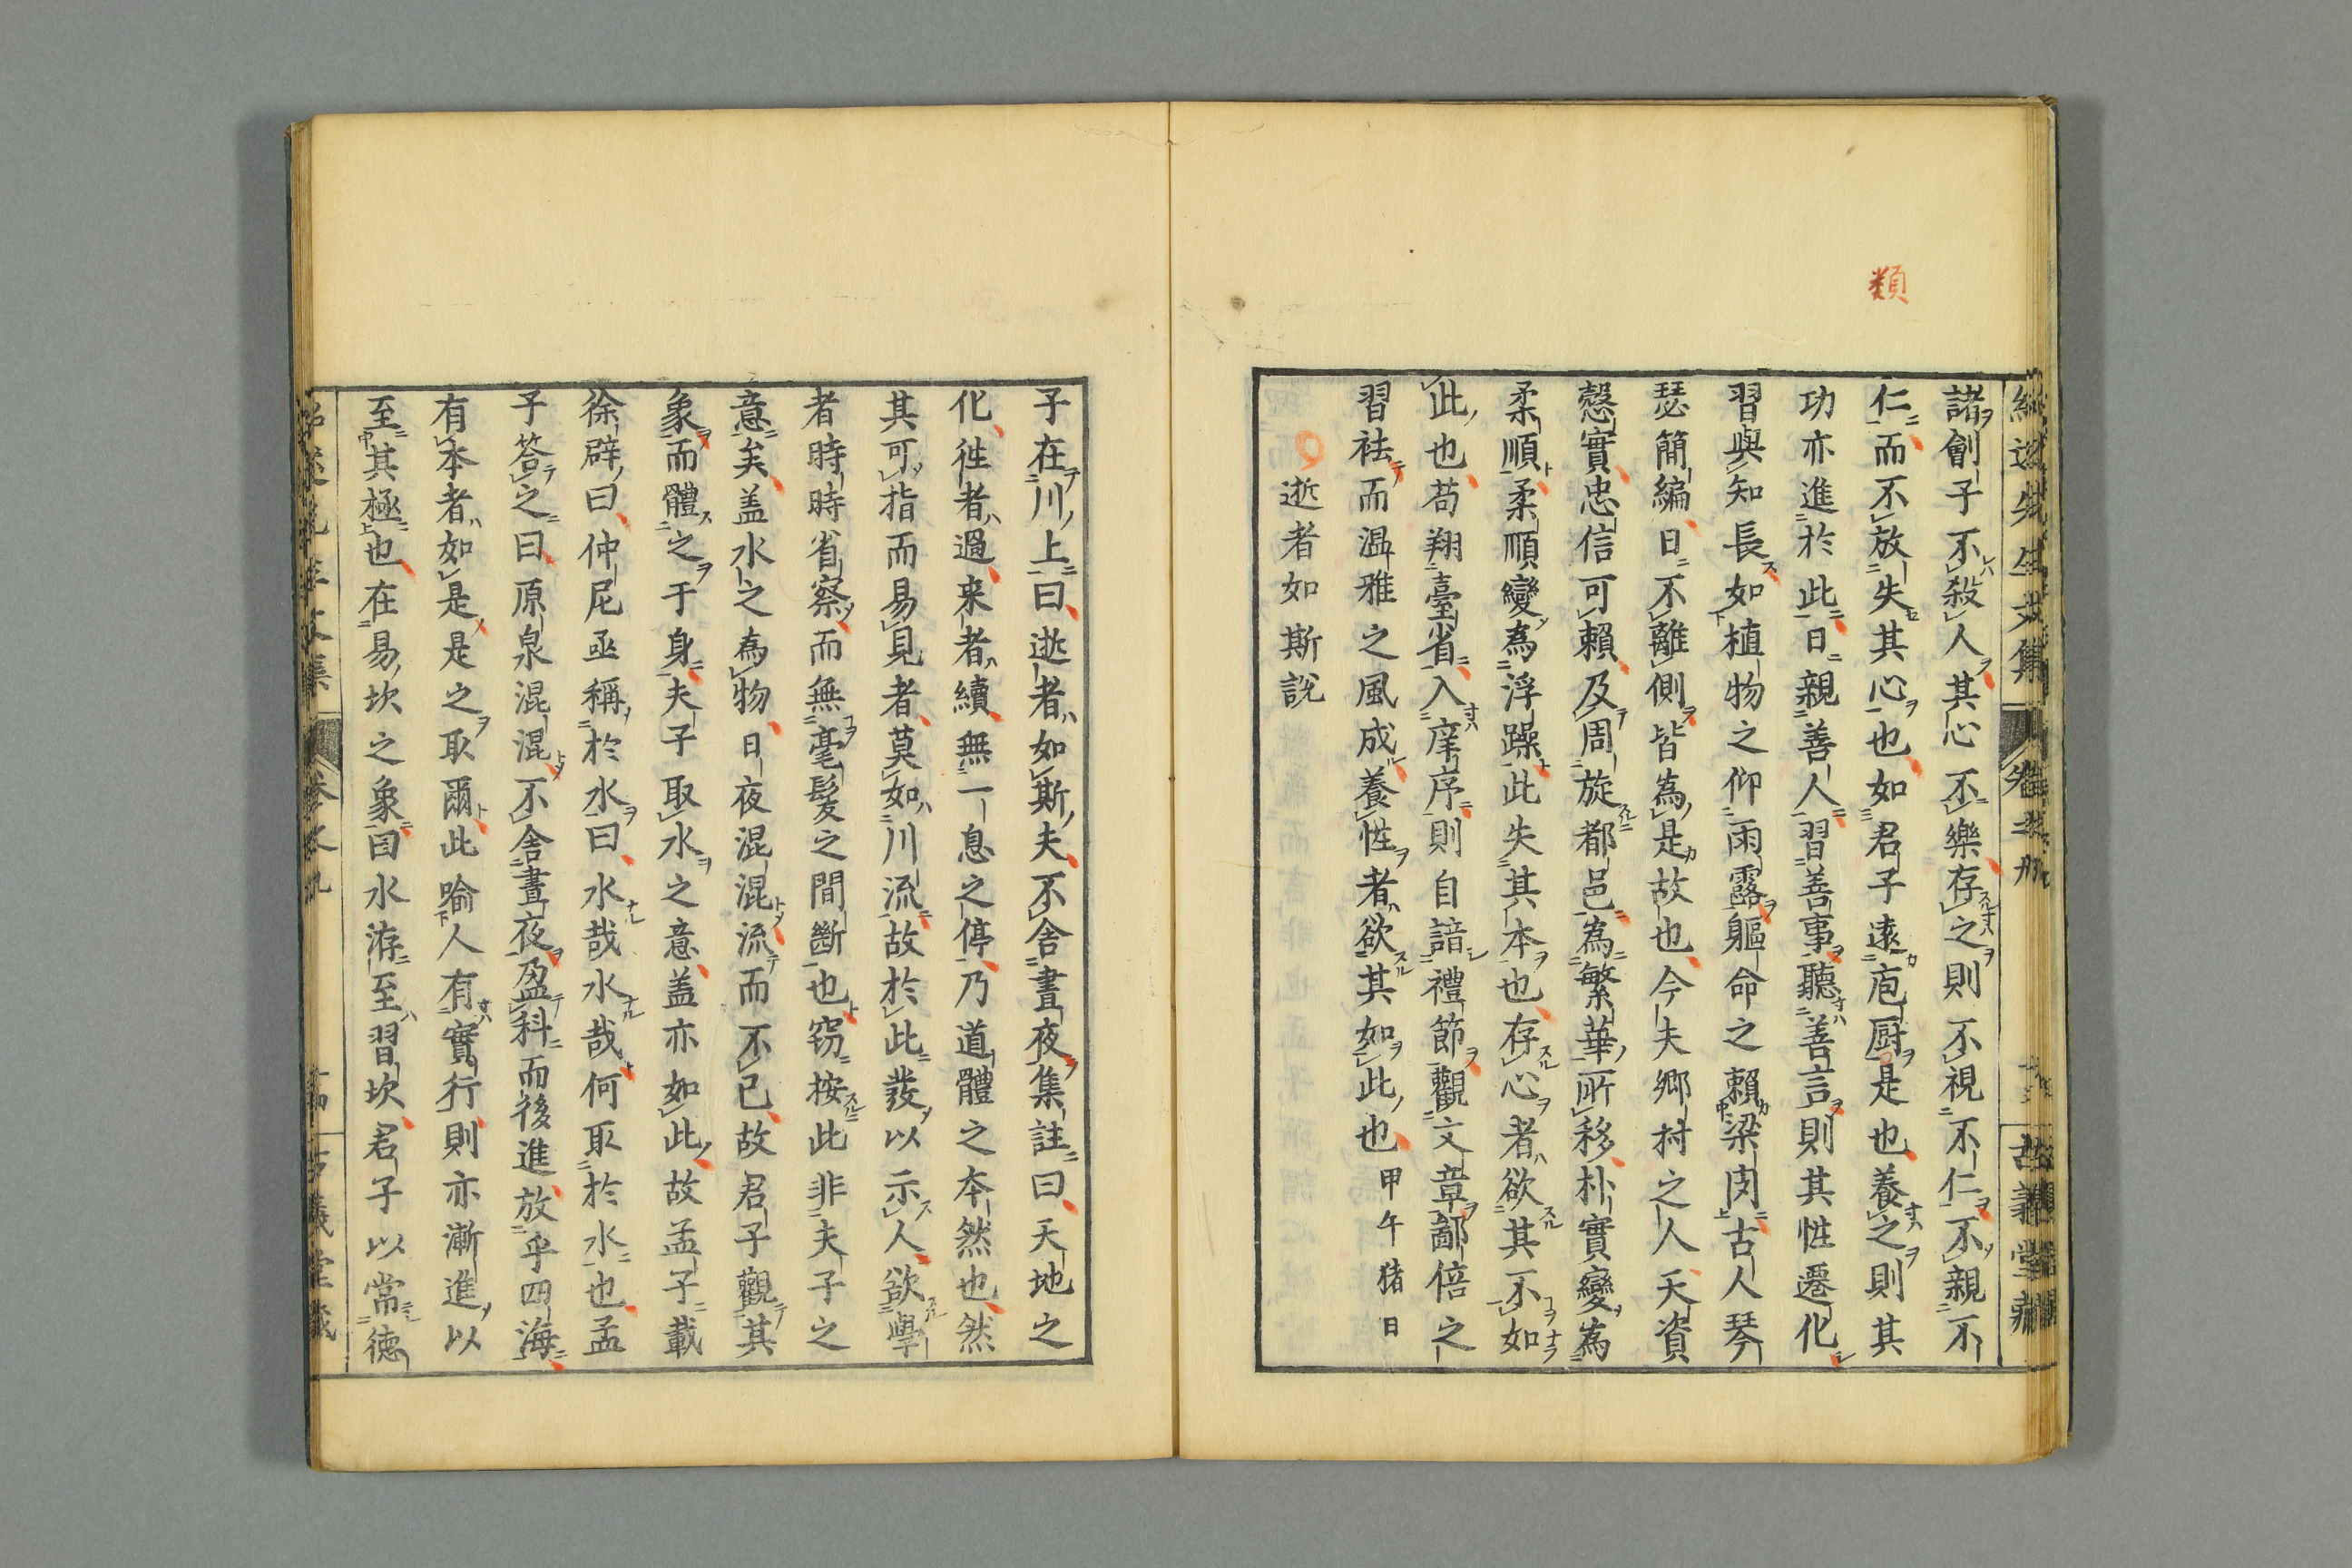 類
諸劊子不殺人其心不樂存之則不視不仁不親不
仁而不放失其心也如君子遠庖厨是也養之則其
功亦進於此日親善人習善事聽善言則其性遷化
習與知長如植物之仰雨露軀命之賴梁肉古人琴
瑟簡編日不離側皆為是故也今夫郷村之人天資
愨實忠信可頼及周旋都邑為繁華所移朴實變為
柔順柔順變為浮躁此失其本也存心者欲其不如
此也苟翔臺省入庠序則自諳禮節觀文章鄙倍之
習袪而温雅之風成養性者欲其如此也甲午猪日
逝者如斯説
子在川上曰逝者如斯夫不舎晝夜集註曰天地之
化徃者過来者續無一息之停乃道體之夲然也然
其可指而易見者莫如川流故於此發以示人欲學
者時時省察而無毫髪之間斷也窃按此非夫子之
意矣盖水之為物日夜混混流而不已故君子觀其
象而體之于身夫子取水之意盖亦如此故孟子載
徐辟曰仲尼亟稱於水曰水哉水哉何取於水也孟
子答之曰原泉混混不舎晝夜盈科而後進放乎四海
有本者如是是之取爾此喩人有實行則亦漸進以
至其極也在易坎之象曰水洊至習坎君子以常徳